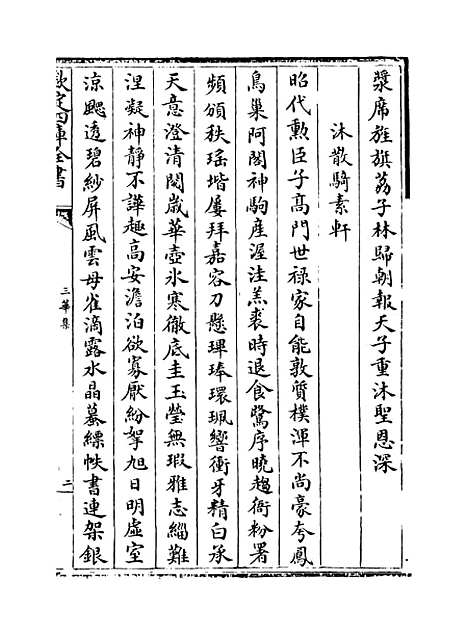 漿席旌旗荔子林歸朝報天子重沐聖恩深
沐散騎素軒
昭代勲臣子髙門世禄家自能敦質樸渾不尚豪夸鳳
鳥巢阿閣神駒産渥洼羔裘時退食鷺序曉趨衙粉署
頻頒秩瑶堦屢拜嘉容刀懸琕琫環珮響衝牙精白承
天意澄清閲歳華壺氷寒徹底圭玉瑩無瑕雅志緇難
涅凝神静不譁趣高安澹泊欲寡厭紛拏旭日明虚室
涼颸透碧紗屏風雲母雀滴露水晶蟇縹帙書連架銀
欽定四庫全書
三華集
二